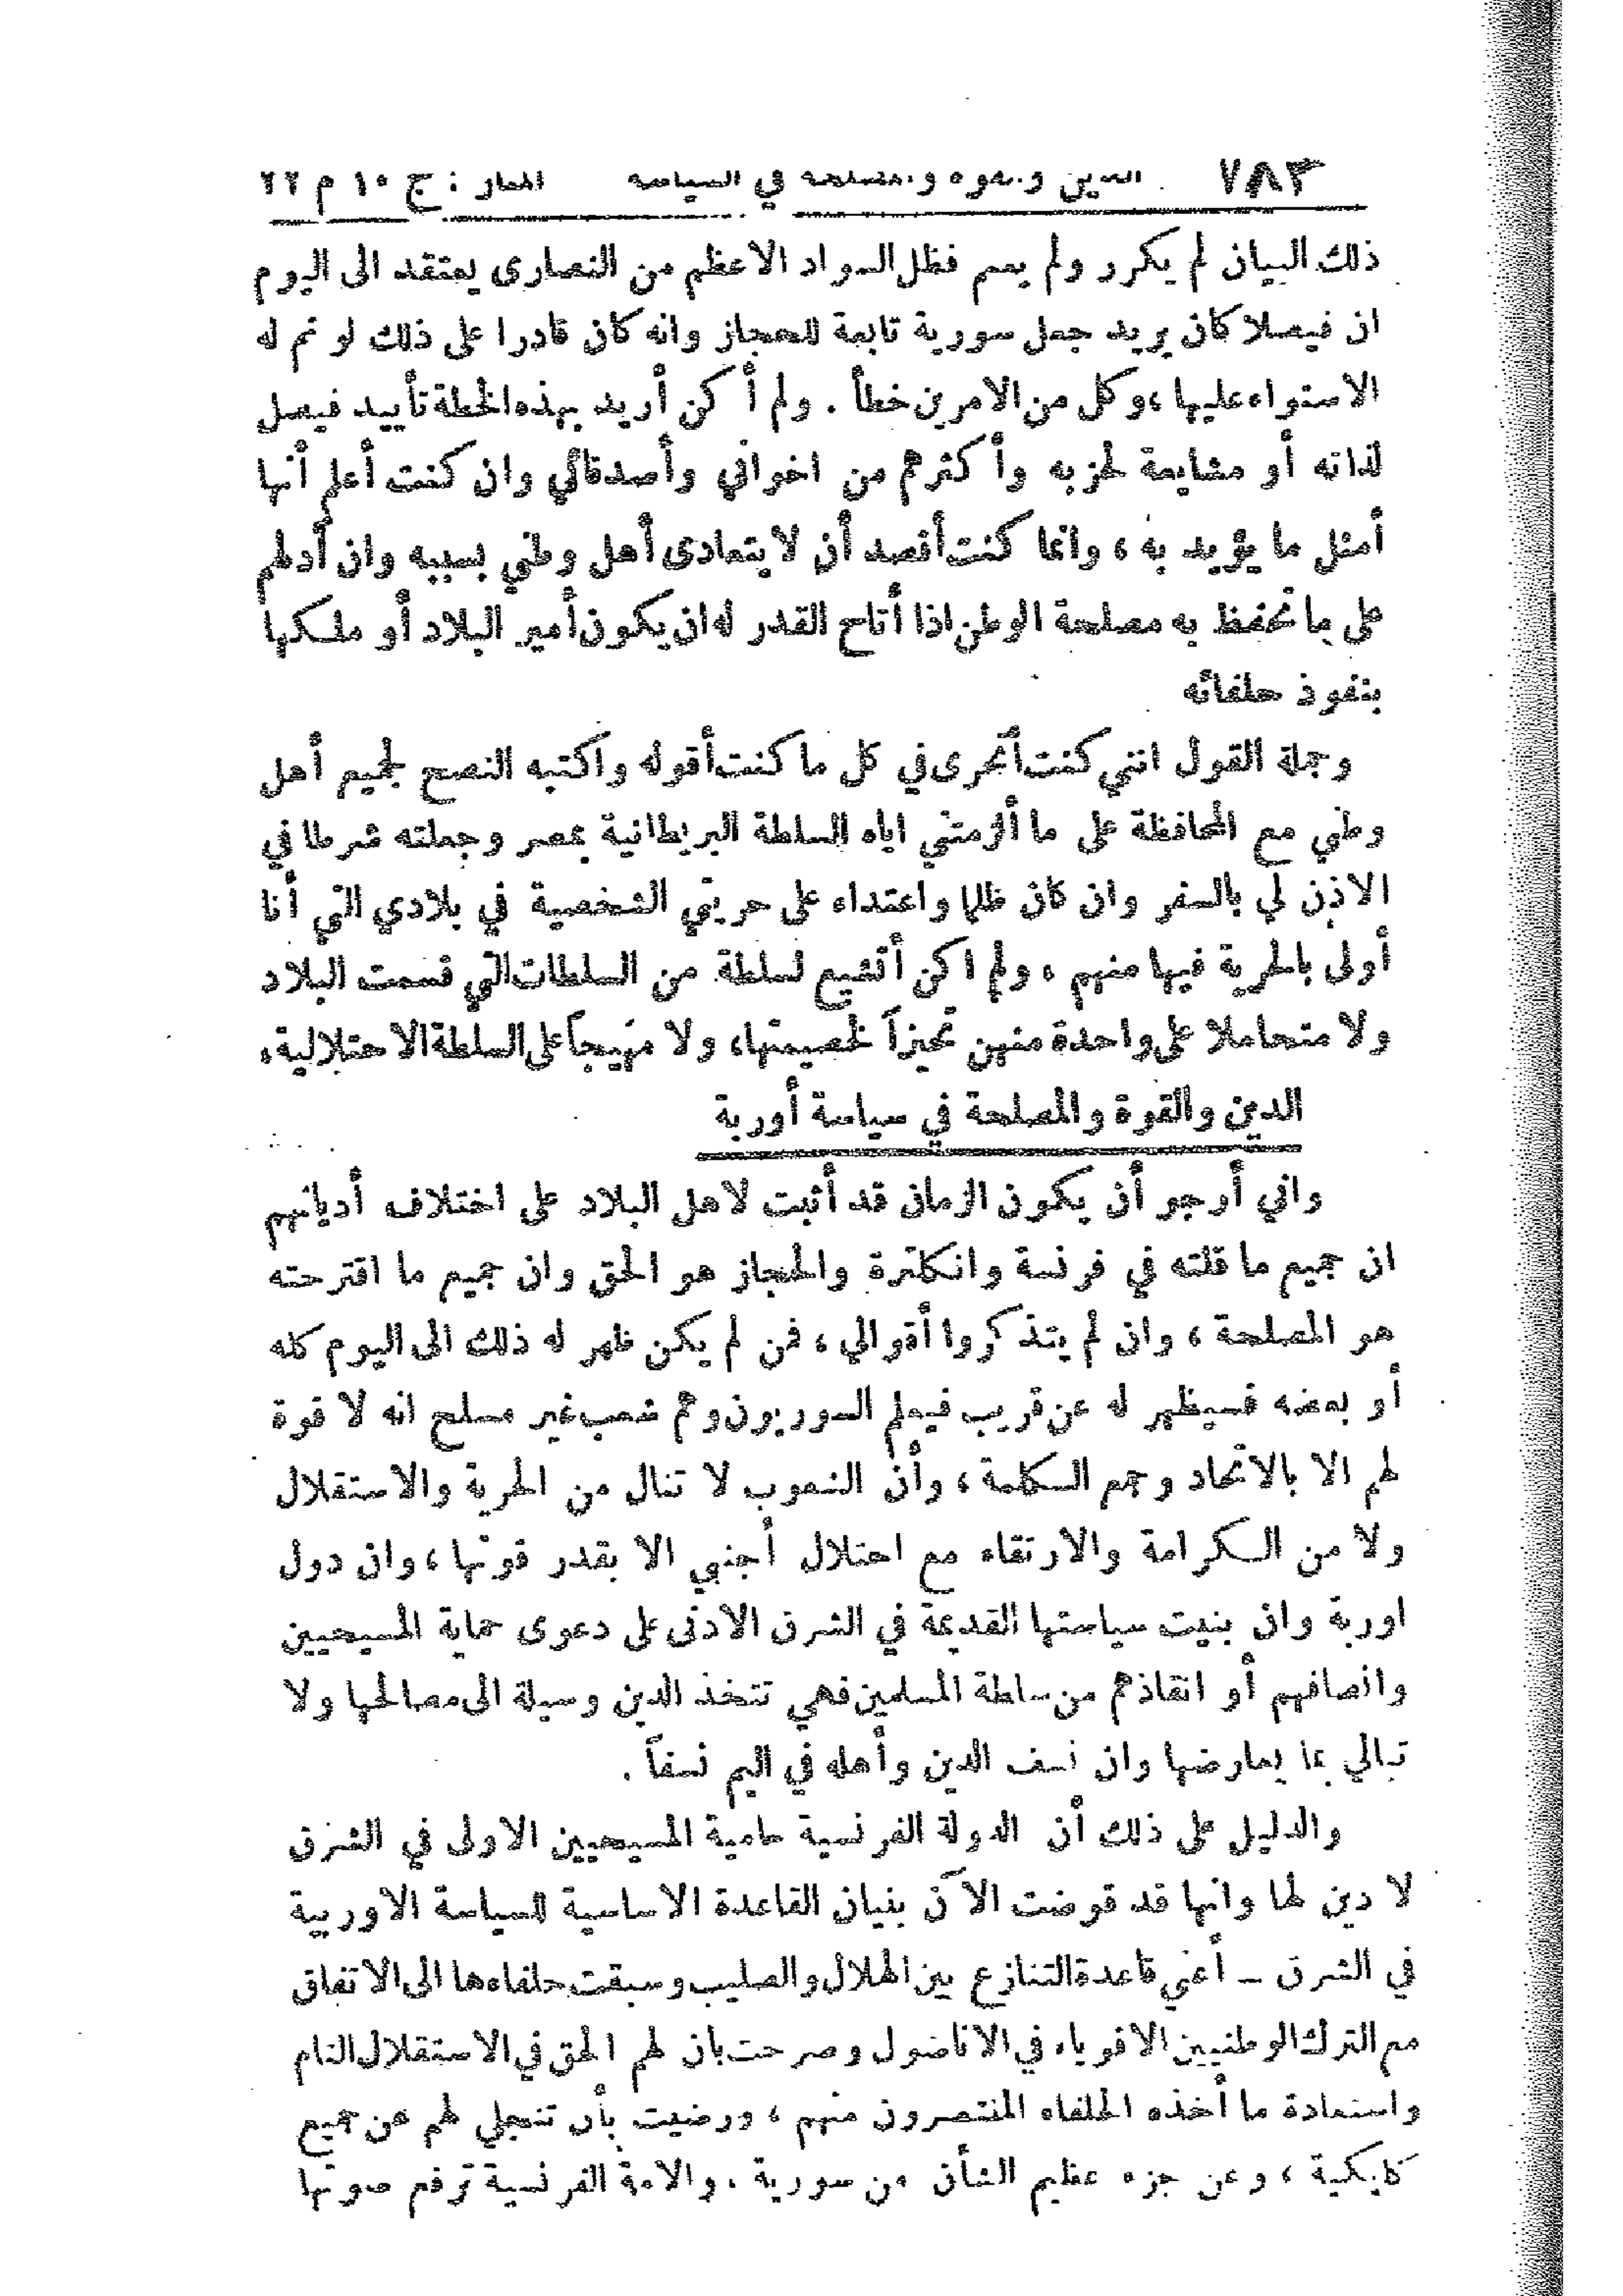 ٧٨٣ الدين والقوة والمصلحة في السياسة المنار : ج ١٠ م ٢٢
ذلك البيان لم يكرر ولم يعم فظل السواد الاعظم من النصارى يعتقد الى اليوم
ان فيصلا كان يريد جعل سورية تابعة للحجاز وانه كان قادرا على ذلك لو تم له
الاستواء عليها ، وكل من الامرين خطأ . ولم أكن أريد بهذه الخطة تأييد فيصل
لذاته أو مشايعة لحزبه وأكثرهم من اخواني وأصدقائي وان كنت أعلم أنها
أمثل ما يؤيد به ، وانما كنت أقصد أن لا يتعادى أهل وطني بسببه وان أدلهم
على ما تحفظ به مصلحة الوطن اذا أتاح القدر له ان يكون أمير البلاد أو ملكها
بنفوذ حلفائه
وجملة القول انني كنت أتحرى في كل ما كنت أقوله واكتبه النصح لجميع أهل
وطني مع المحافظة على ما ألزمتني اياه السلطة البريطانية بمصر وجعلته شرطا في
الاذن لي بالسفر وان كان ظلما واعتداء على حريتي الشخصية في بلادي التي أنا
أولى بالحرية فيها منهم ، ولم اكن أتشيع لسلطة من السلطات التي قسمت البلاد
ولا متحاملا على واحدة منهن تحيزاً لخصيمتها ، ولا مهيجاً على السلطة الاحتلالية ،
الدين والقوة والمصلحة في سياسة أوربة
واني أرجو أن يكون الزمان قد أثبت لاهل البلاد على اختلاف أديانهم
ان جميع ما قلته في فرنسة وانكلترة والحجاز هو الحق وان جميع ما اقترحته
هو المصلحة ، وان لم يتذكروا أقوالي ، فمن لم يكن ظهر له ذلك الى اليوم كله
أو بعضه فسيظهر له عن قريب فيعلم السوريون وهم شعب غير مسلح انه لا قوة
لهم الا بالاتحاد وجمع الكلمة ، وأن الشعوب لا تنال من الحرية والاستقلال
ولا من الكرامة والارتقاء مع احتلال أجنبي الا بقدر قوتها ، وان دول
اوربة وان بنيت سياستها القديمة في الشرق الادنى على دعوى حماية المسيحيين
وانصافهم أو انقاذهم من سلطة المسلمين فهي تتخذ الدين وسيلة الى مصالحها ولا
تبالي بما يعارضها وان نسف الدين وأهله في اليم نسفاً .
والدليل على ذلك أن الدولة الفرنسية حامية المسيحيين الاولى في الشرق
لا دين لها وانها قد قوضت الآن بنيان القاعدة الاساسية للسياسة الاوربية
في الشرق ـ أعني قاعدة التنازع بين الهلال والصليب وسبقت حلفاءها الى الاتفاق
مع الترك الوطنيين الاقوياء في الاناضول وصرحت بان لهم الحق في الاستقلال التام
واستعادة ما أخذه الحلفاء المنتصرون منهم ، ورضيت بأن تنجلي لهم عن جميع
كليكية ، وعن جزء عظيم الشأن من سورية . والامة الفرنسية ترفع صوتها